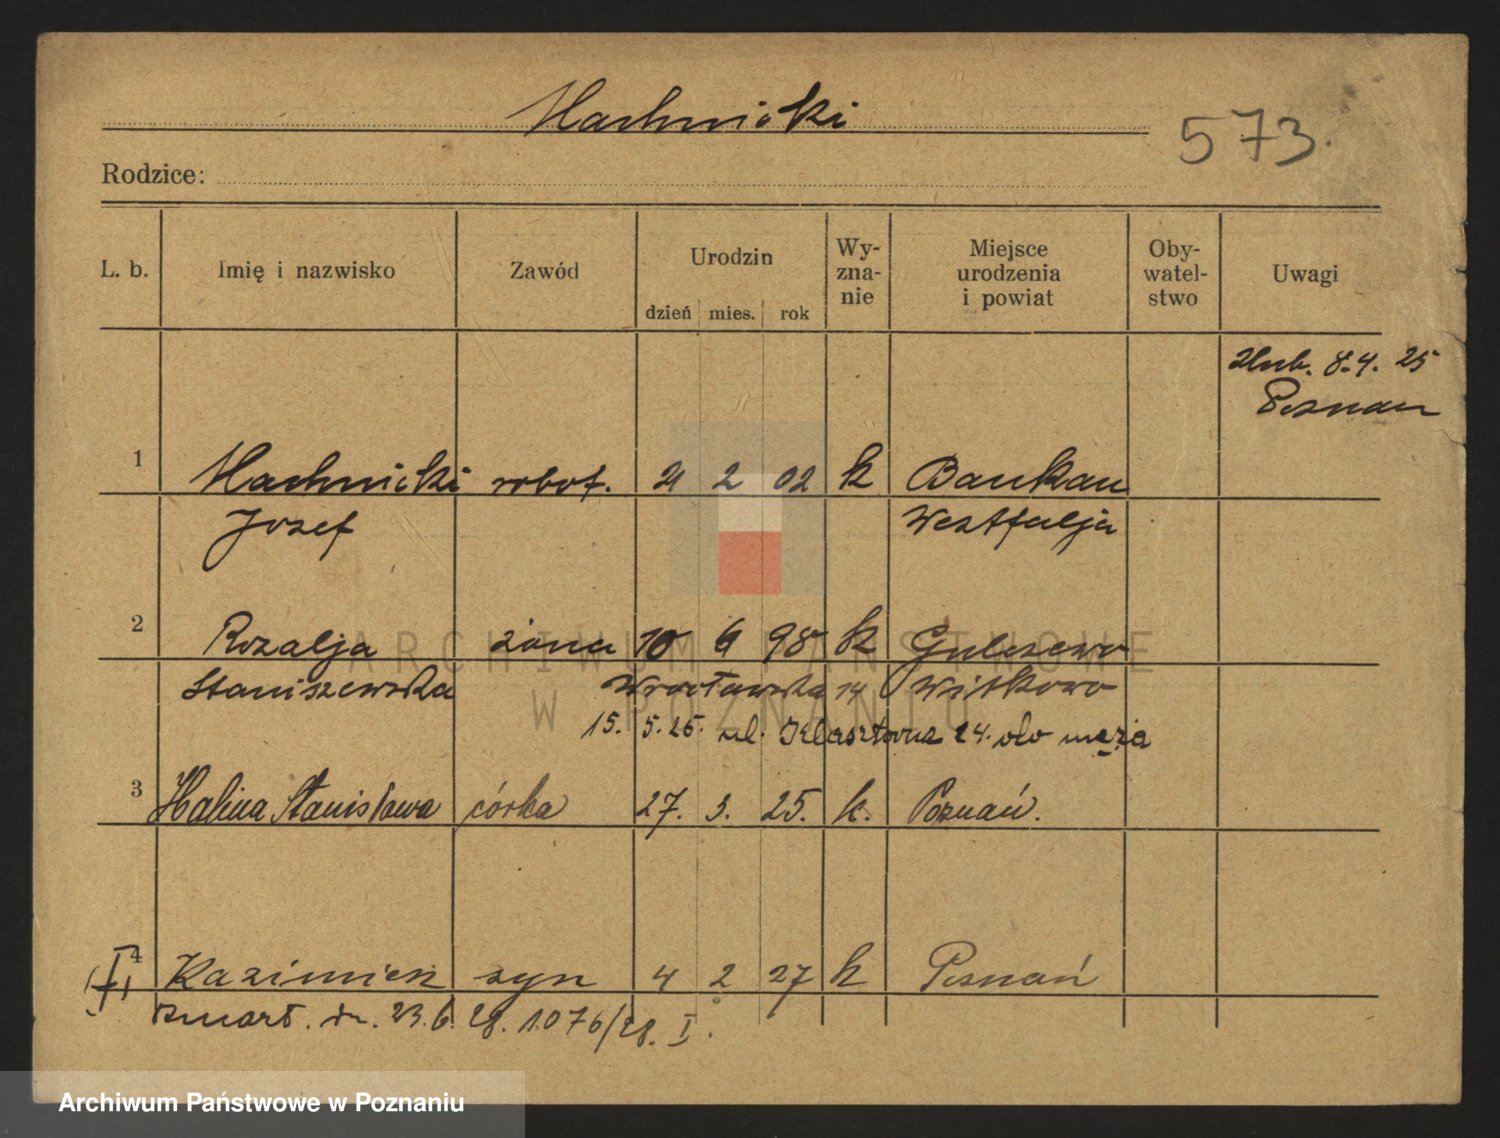 Machnicki
573.
Rodzice:
L. b. Imię i nazwisko Zawód Urodzin dzień mies. rok Wy-zna-nie Miejsce urodzenia i powiat Oby-watel-stwo Uwagi
8.4.25
Poznan
1 Machnicki robot. 2 02 k Baukau
Jozef Westfalja
2 Rozalja żona 10 6 98 k Gulczewo
Staniszewska Wrocławska 14 Witkowo
15. 5.25. ul. Klasztorna 24. do męża
3 Halina Stanisława córka 27. 3. 25. k. Poznań.
4 Kazimierz syn 4 2 27 k Poznań
zmarł. dn. 23.6.28. 1076/28. I.
ARCHIWUM PAŃSTWOWE
W POZNANIU
Archiwum Państwowe w Poznaniu